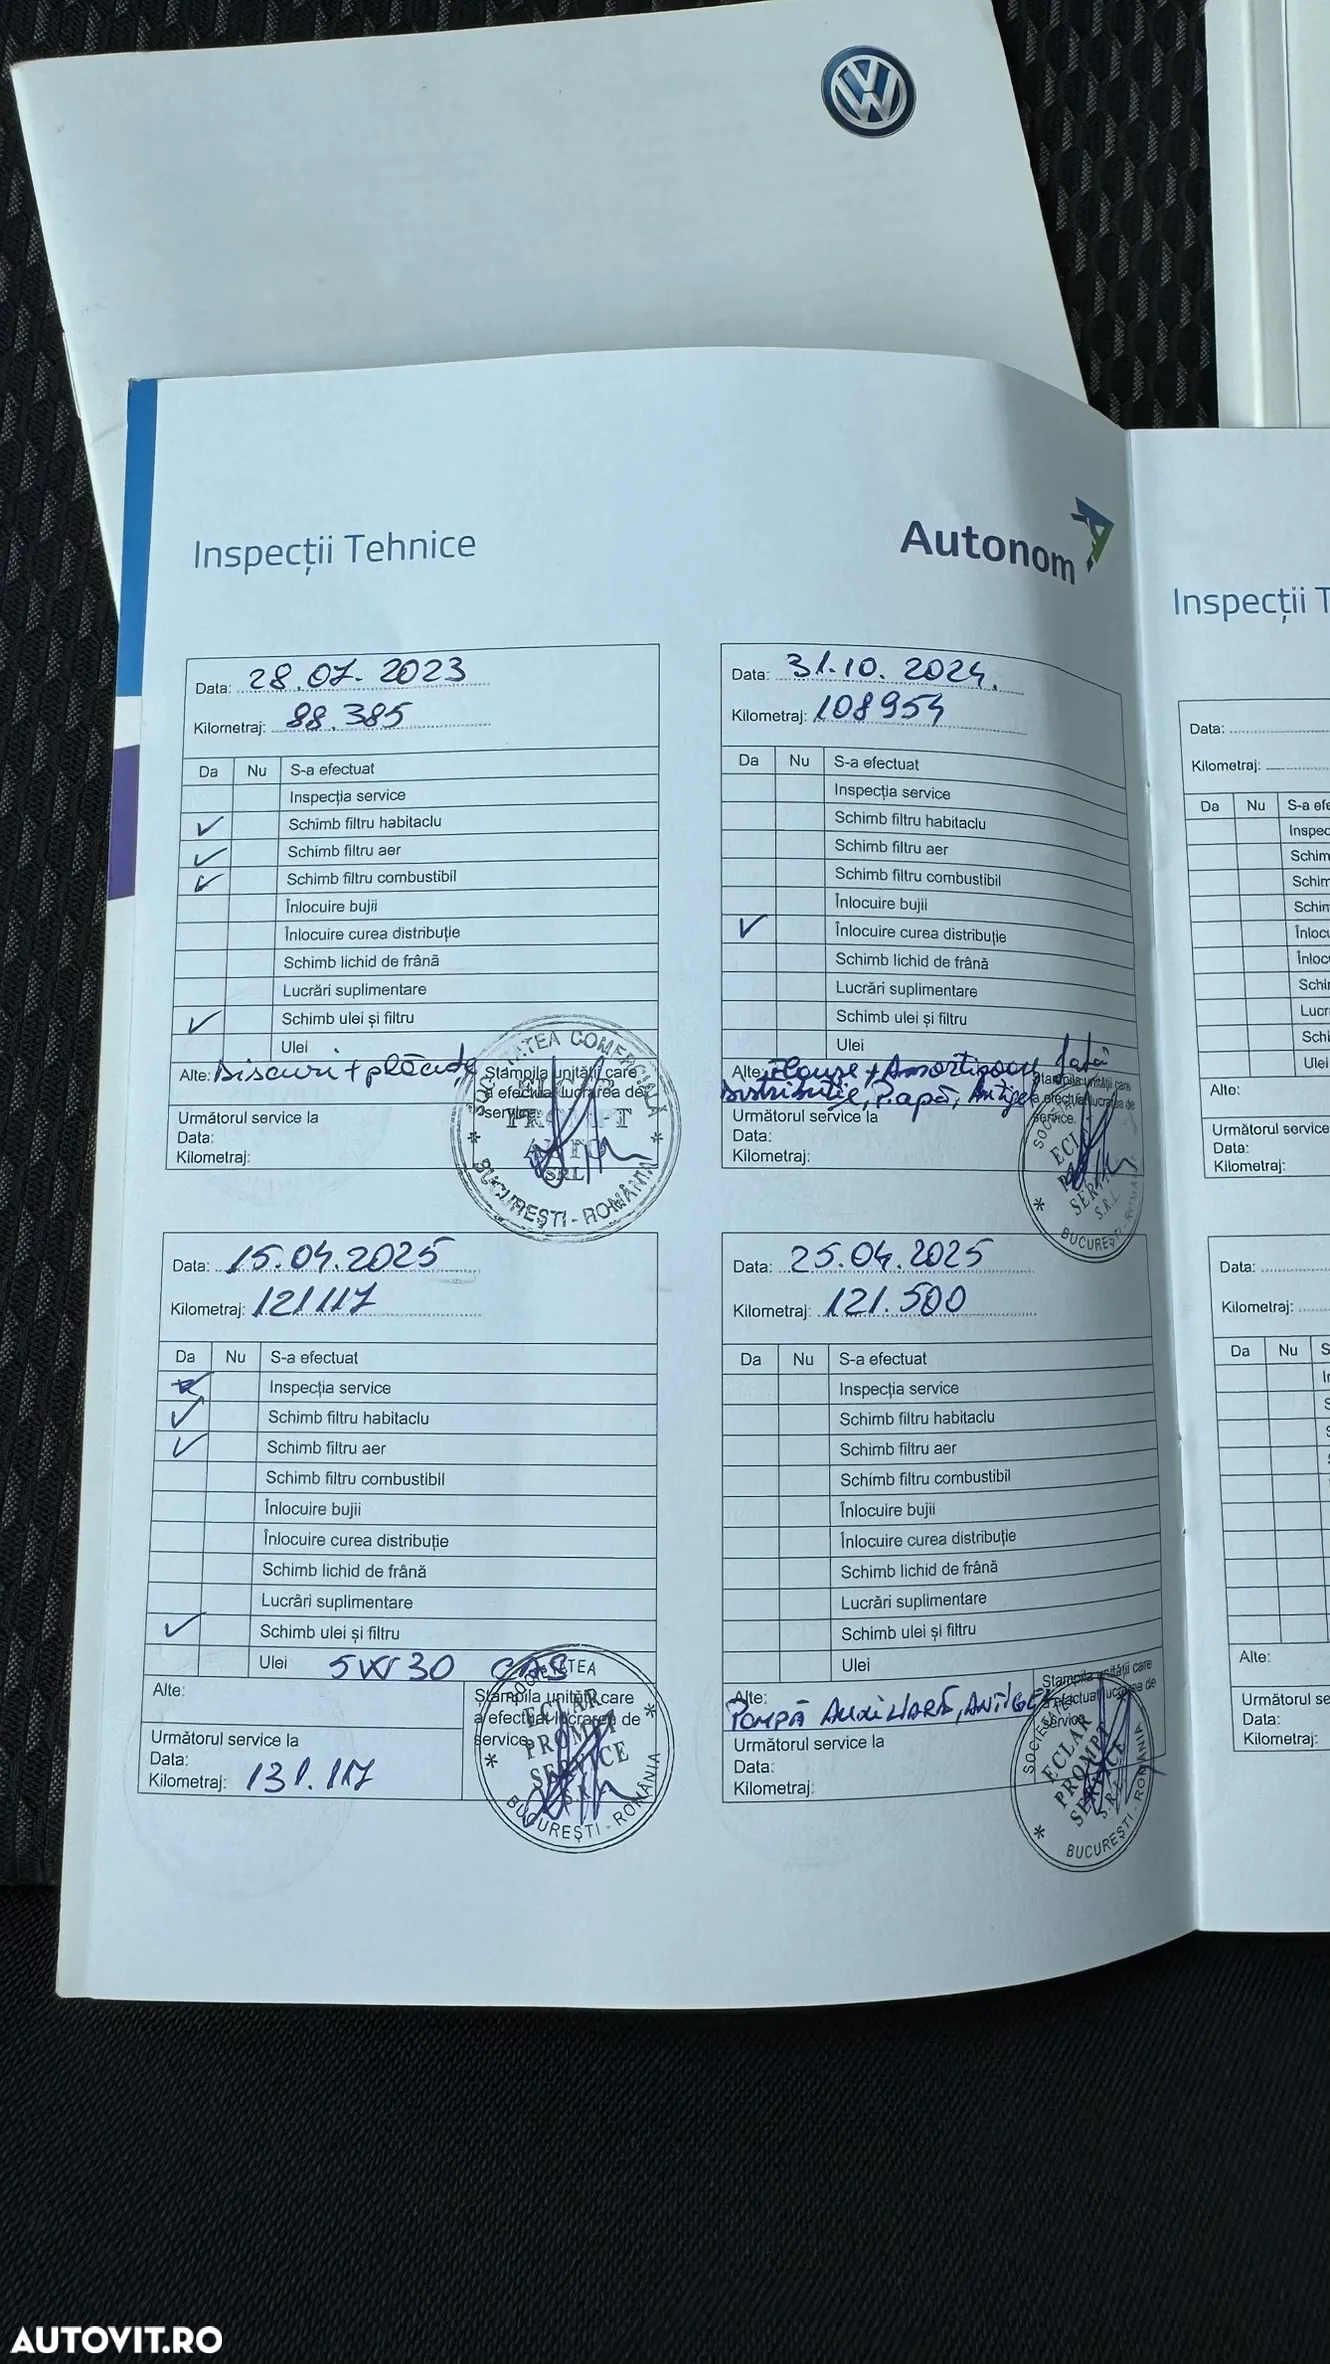 Inspecții Tehnice
Autonom
Data: 28.07.2023
Kilometraj: 88.385
Da Nu S-a efectuat
Inspecția service
Schimb filtru habitaclu
Schimb filtru aer
Schimb filtru combustibil
Înlocuire bujii
Înlocuire curea distribuție
Schimb lichid de frână
Lucrări suplimentare
Schimb ulei și filtru
Ulei
Alte: Discuri + plăcuțe
Ștampila unității care
a efectuat lucrarea de
service
Următorul service la
Data:
Kilometraj:
PROMPT
AUTO
SRL
BUCUREȘTI - ROMÂNIA
Data: 31.10.2024.
Kilometraj: 108954
Da Nu S-a efectuat
Inspecția service
Schimb filtru habitaclu
Schimb filtru aer
Schimb filtru combustibil
Înlocuire bujii
Înlocuire curea distribuție
Schimb lichid de frână
Lucrări suplimentare
Schimb ulei și filtru
Ulei
Alte: Flanșe + Amortizoare față
Distribuție, Papă, Antigel
Ștampila unității care
a efectuat lucrarea de
service.
Următorul service la
Data:
Kilometraj:
S.R.L.
BUCUREȘTI - ROMÂNIA
Data: 15.04.2025
Kilometraj: 121117
Da Nu S-a efectuat
Inspecția service
Schimb filtru habitaclu
Schimb filtru aer
Schimb filtru combustibil
Înlocuire bujii
Înlocuire curea distribuție
Schimb lichid de frână
Lucrări suplimentare
Schimb ulei și filtru
Ulei 5W30
Alte:
Ștampila unității care
a efectuat lucrarea de
service
Următorul service la
Data:
Kilometraj: 131.117
SOCIETATEA
ECLAR
PROMPT
SERVICE
S.R.L.
BUCUREȘTI - ROMÂNIA
Data: 25.04.2025
Kilometraj: 121.500
Da Nu S-a efectuat
Inspecția service
Schimb filtru habitaclu
Schimb filtru aer
Schimb filtru combustibil
Înlocuire bujii
Înlocuire curea distribuție
Schimb lichid de frână
Lucrări suplimentare
Schimb ulei și filtru
Ulei
Alte:
POMPĂ AUXILIARĂ, ANTIGEL
Ștampila unității care
a efectuat lucrarea de
service
Următorul service la
Data:
Kilometraj:
SOCIETATEA
ECLAR
PROMPT
SERVICE
S.R.L.
BUCUREȘTI - ROMÂNIA
Inspecții T
Data:
Kilometraj:
Da Nu S-a efe
Inspec
Schim
Schim
Schim
Înlocu
Înloc
Schi
Lucr
Schi
Ulei
Alte:
Următorul service
Data:
Kilometraj:
Data:
Kilometraj:
Da Nu S
Alte:
Următorul se
Data:
Kilometraj:
AUTOVIT.RO